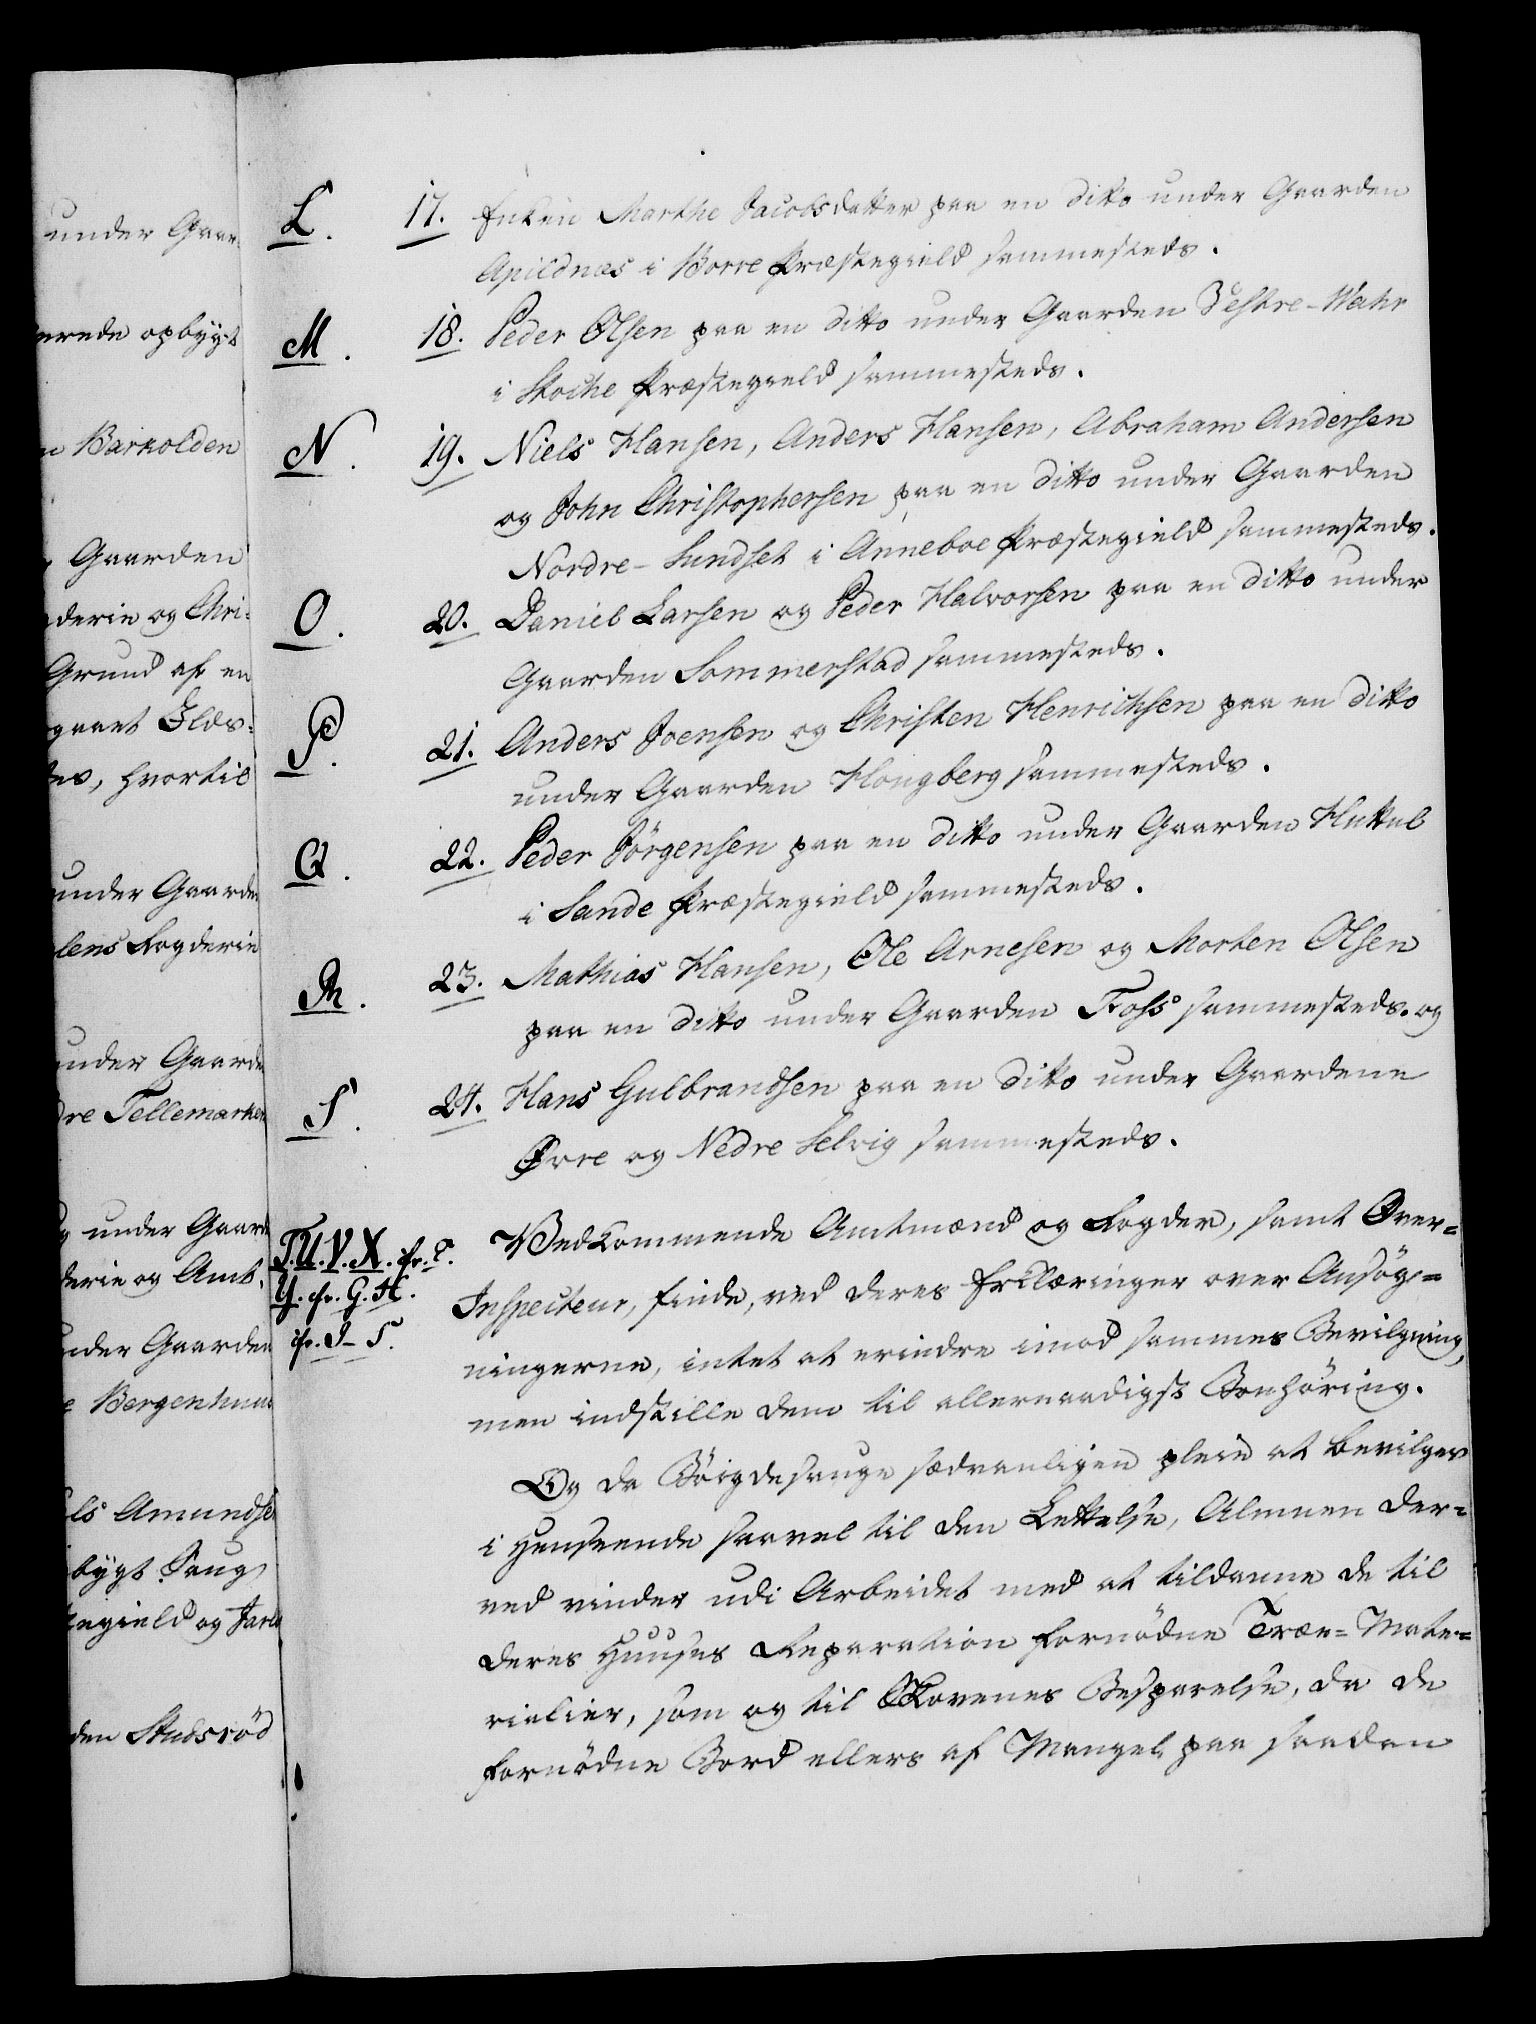 under Gaar-
erede opbygt
n Barkolden
Gaarden
derie og Chri-
Grund af en
gaaet Flds-
des, hvortil
under Gaarden
lens Fogderie
under Gaarde
dre Tellemarken
g under Gaard
derie og Amt.
under Gaarden
e Bergenhuus
els Amundse
bygt Saug
tegield og Jarls
den Skudsröd
L. 17. Enken Marthe Jacobsdatter paa en ditto under Gaarden
Apildnæs i Borre Præstegield sammesteds.
M. 18. Peder Olsen paa en ditto under Gaarden Vestre-Wahr
i Stoche Præstegield sammesteds.
N. 19. Niels Hansen, Anders Hansen, Abraham Andersen
og John Christophersen paa en ditto under Gaarden
Nordre-Sundset i Anneboe Præstegield sammesteds.
O. 20. Daniel Larsen og Peder Halvorsen paa en ditto under
Gaarden Sommerstad sammesteds.
P. 21. Anders Joensen og Christen Henrichsen paa en ditto
under Gaarden Hongberg sammesteds.
Q. 22. Peder Jörgensen paa en ditto under Gaarden Huttul
i Sande Præstegield sammesteds.
R. 23. Mathias Hansen, Ole Arnesen og Morten Olsen
paa en ditto under Gaarden Foss sammesteds. og
S. 24. Hans Gulbrandsen paa en ditto under Gaardene
Øvre og Nedre Selvig sammesteds.
T.U.V.X. cfr.
Y. cfr. G.H.
cfr. I-S.
Vedkommende Amtmænd og Fogder, samt Over-
Inspecteur, finde, ved deres Erklæringer over Ansög-
ningerne, intet at erindre imod sammes Bevilgning,
men indstille dem til allernaadigst Bönhöring.
Og da Böigdesauge sædvanligen pleie at bevilges
i Henseende saavel til den Lettelse, Almuen der-
ved vinder udi Arbeidet med at tildanne de til
deres Huuses Reparation fornödne Træe-Mate-
rialier, som og til Skovenes Besparelse, da de
fornödne Bord ellers af Mangel paa saadan